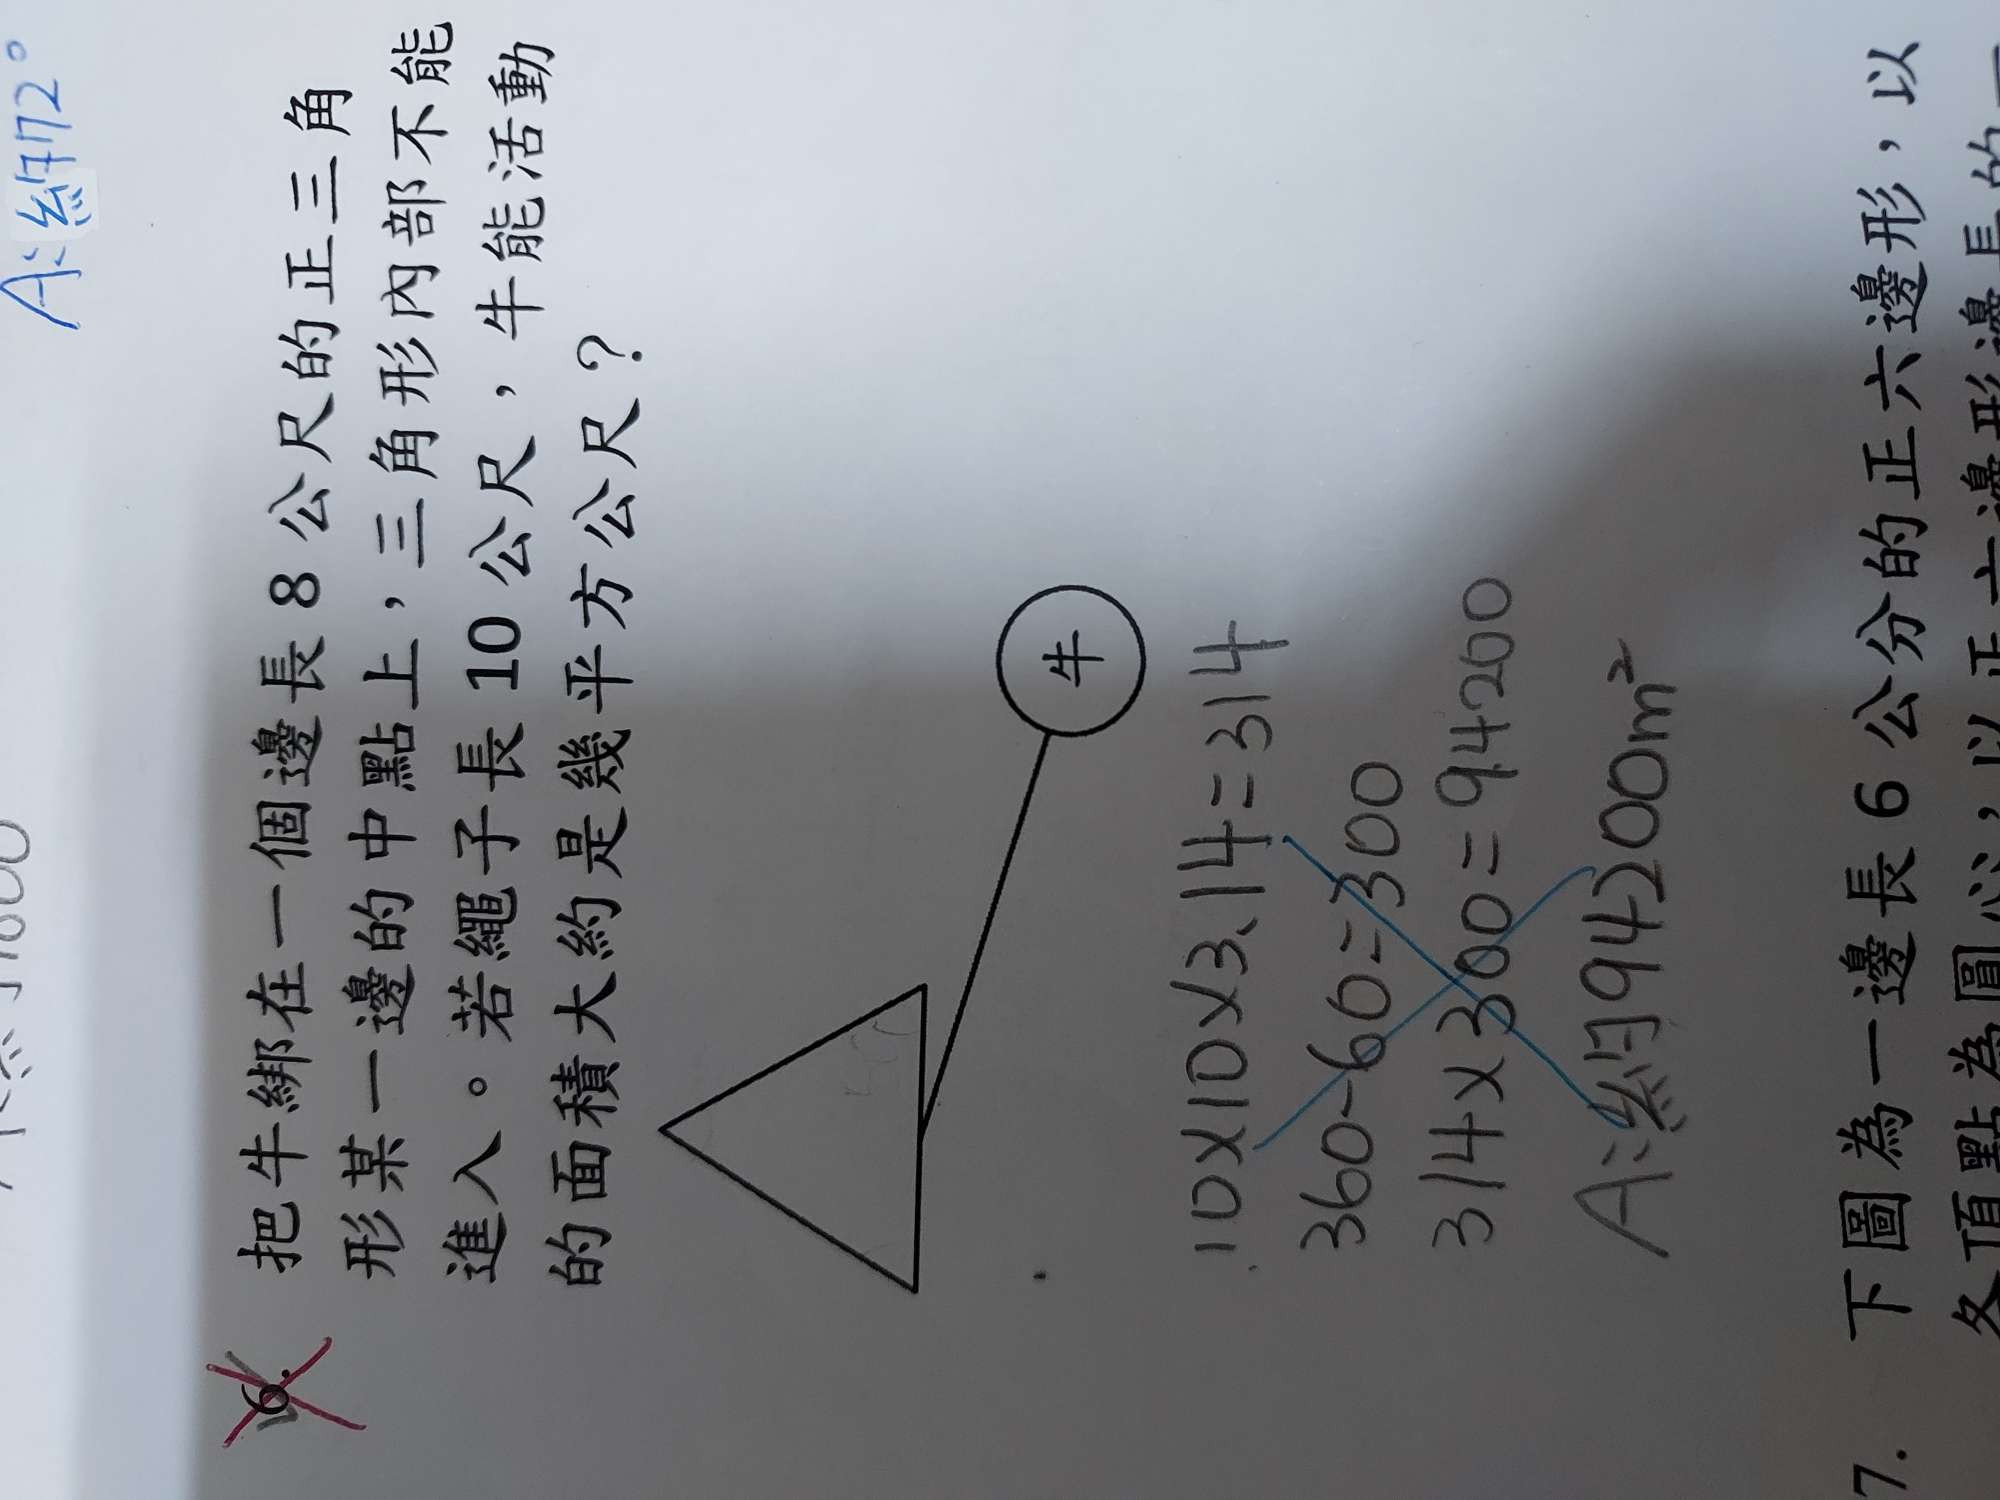 A:約172°
6. 把牛綁在一個邊長 8 公尺的正三角
形某一邊的中點上，三角形內部不能
進入。若繩子長 10 公尺，牛能活動
的面積大約是幾平方公尺？
牛
10×10×3.14=314
360-60=300
314×300=94200
A:約94200m²
7. 下圖為一邊長 6 公分的正六邊形，以
各頂點為圓心，以正六邊形邊長的一